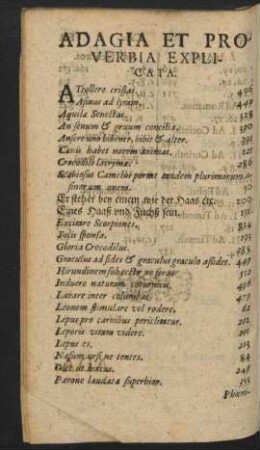 ADAGIA ET PRO
VERBIA EXPLI-
CATA.
ATtollere cristas. 496
Asinus ad lyram. 449
Aquila Senectus. 328
An senum & gravium concilia. 300
bibit & alter. 291
Canis habet 20
Crocodili lacrymæ. 786
Scabiosus Camelus portat eundem plurimorum
sinorum onera. 90
Er stehet bey einem wie der Haas etc.
Eines Haaß und Fuchß sein. 195
Excitare Scorpiones. 815
Folis sponsa. 194
Gloria Crocodilus. 785
Graculus ad fides & graculus graculo assidet. 449
Hirundinem sub tecto ne feras 512
Induere naturam 498
Lavare inter columbas. 479
Leonem stimulare vel rodere. 62
Lepus pro carnibus periclitatur. 202
Leporis vitam videre. 201
Lepus es. 203
Nasum ursi ne tentes. 84
Olet ut hircus. 248
Pavone laudato superbior. 355
Phœni-